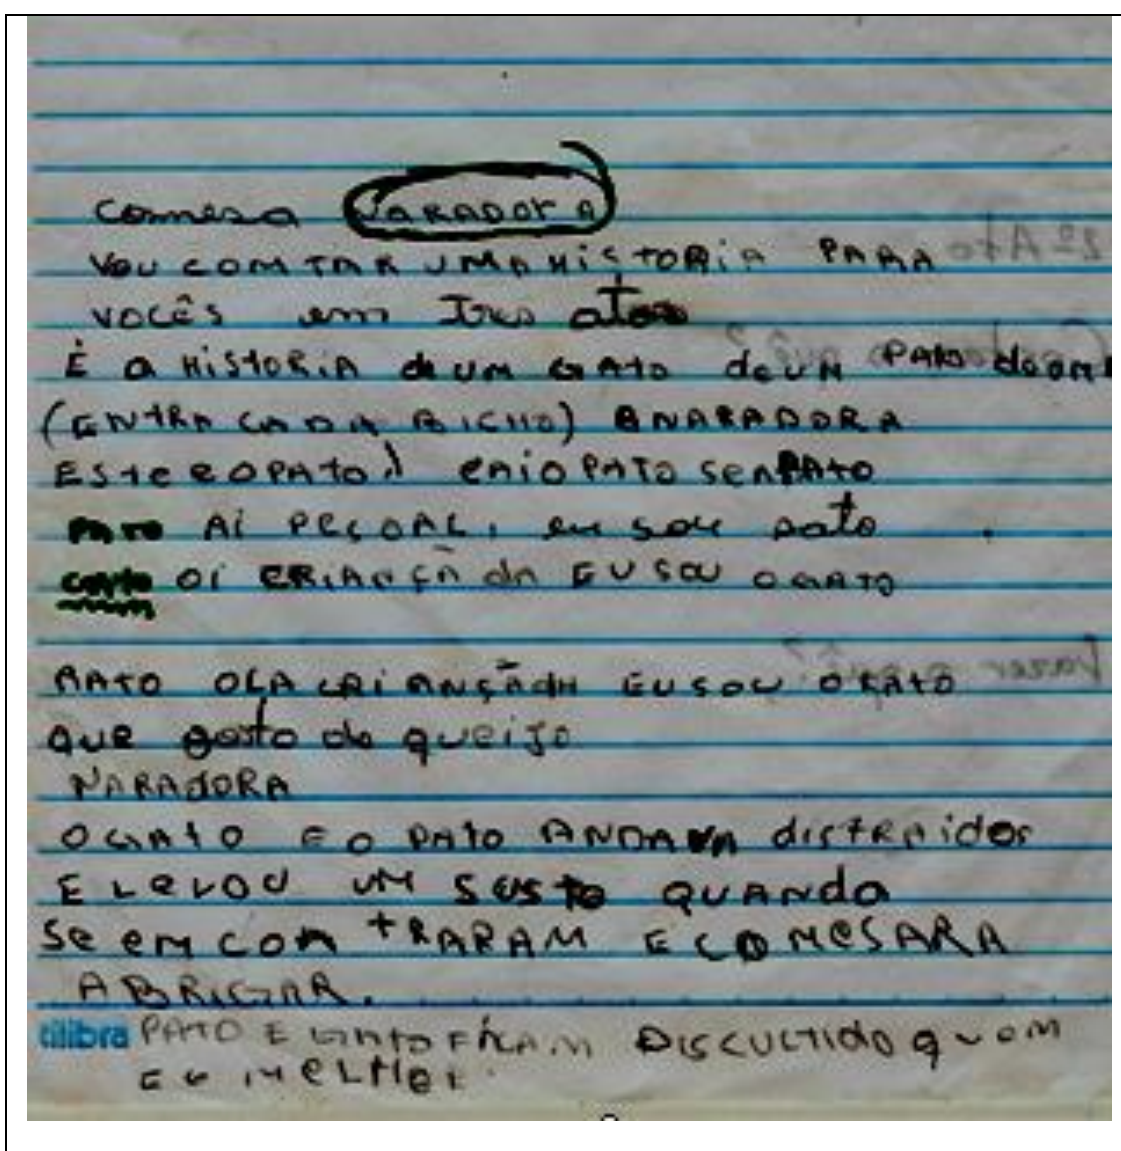 comesa NARADORA
VOU COMTAR UMA HISTORIA PARA
VOCÊS em Tres atos
É a HISTORIA de UM GATO de UM PATO
(ENTRA CADA BICHO) A NARADORA
ESTE E O PATO)
PATO AI PEÇOAL, eu sou pato
OI CRIANÇADA EU SOU O GATO
RATO OLA CRIANÇADA EU SOU O RATO
QUE gosto de queijo
NARADORA
O GATO E O PATO ANDAVA distRAidos
E LEVOU UM SUSTO QUANDO
SE EMCOMTRARAM E COMESARA
A BRIGAR.
tilibra PATO E GATO FICAM DISCULTIDO QUOM
E MELHER.